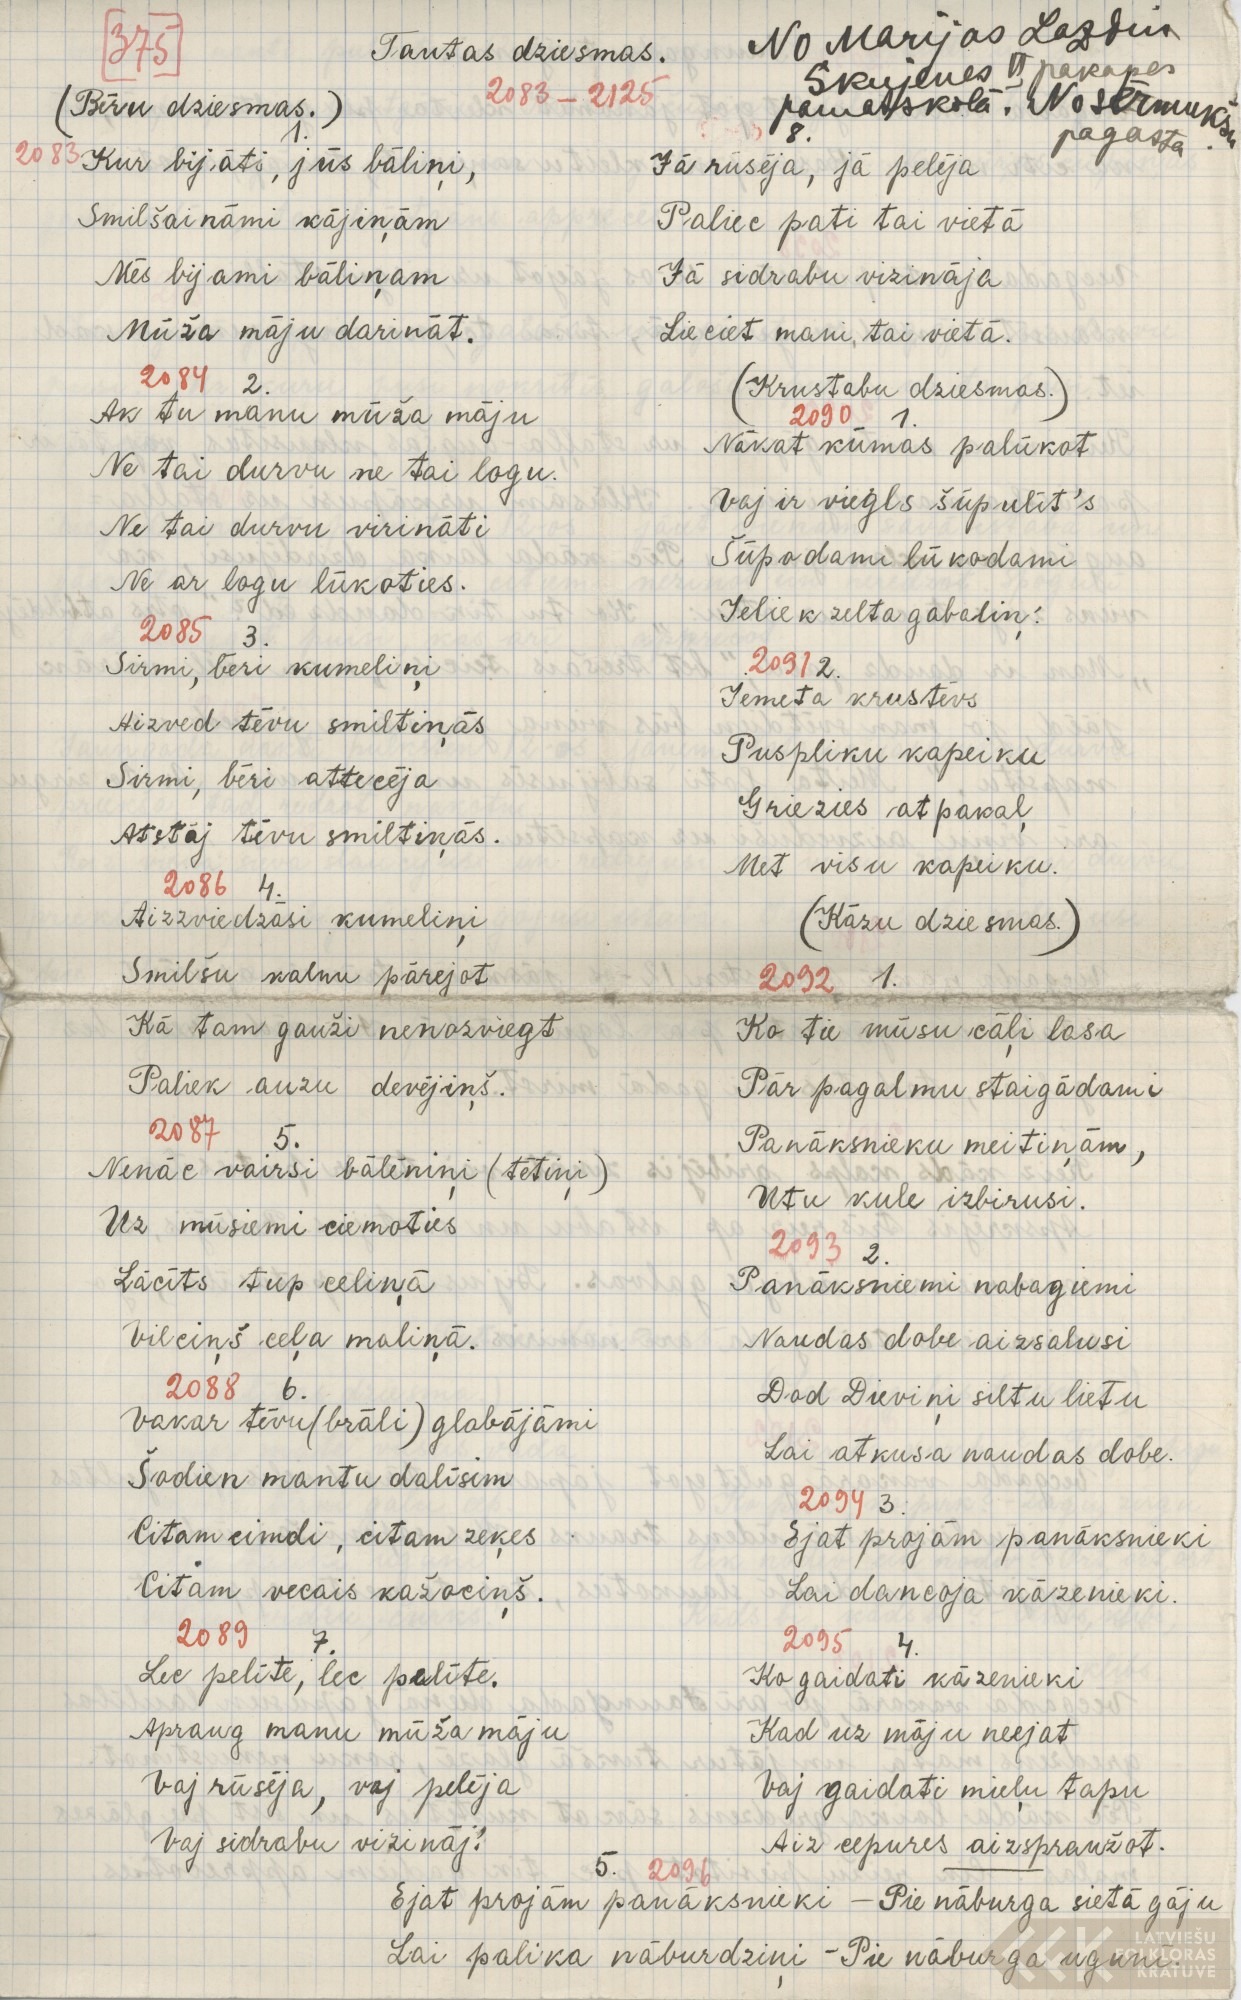 375
Tautas dziesmas.
2083 – 2125
No Marijas Lazdiņ
Skujenes VI pakāpes
pamatskolā. No Sērmukšu
pagasta.
(Bēru dziesmas.)
1.
2083 Kur bijāti, jūs bāliņi,
Smilšaināmi kājiņām
Mēs bijami bāliņam
Mūža māju darināt.
2084 2.
Ak tu manu mūža māju
Ne tai durvu ne tai logu.
Ne tai durvu virināti
Ne ar logu lūkoties.
2085 3.
Sirmi, bēri kumeliņi
Aizved tēvu smiltiņās
Sirmi, bēri attecēja
Atstāj tēvu smiltiņās.
2086 4.
Aizzviedzāsi kumeliņi
Smilšu kalnu pārejot
Kā tam gauži nenozviegt
Paliek auzu devējiņš.
2087 5.
Nenāc vairsi bālēniņi (tētiņi)
Uz mūsiemi ciemoties
Lācīts tup celiņā
Vilciņš ceļa maliņā.
2088 6.
Vakar tēvu (brāli) glabājāmi
Šodien mantu dalīsim
Citam cimdi, citam zeķes
Citam vecais kažociņš.
2089 7.
Lec pelīte, lec pelīte.
Apraug manu mūža māju
Vaj rūsēja, vaj pelēja
Vaj sidrabu vizināj'?
8.
Jā rūsēja, jā pelēja
Paliec pati tai vietā
Jā sidrabu vizināja
Lieciet mani tai vietā.
(Krustabu dziesmas.)
2090 1.
Nākat kūmas palūkot
Vaj ir viegls šūpulīt's
Šūpodami lūkodami
Ieliek zelta gabaliņ'.
2091 2.
Iemeta krustēvs
Puspliku kapeiku
Griezies atpakaļ
Met visu kapeiku.
(Kāzu dziesmas.)
2092 1.
Ko tie mūsu cāļi lasa
Pār pagalmu staigādami
Panāksnieku meitiņām,
Utu kule izbirusi.
2093 2.
Panāksniemi nabagiemi
Naudas dobe aizsalusi
Dod Dieviņi siltu lietu
Lai atkusa naudas dobe.
2094 3.
Ejat projām panāksnieki
Lai dancoja kāzenieki.
2095 4.
Ko gaidati kāzenieki
Kad uz māju neejat
Vaj gaidati mieļu tapu
Aiz cepures aizspraužot.
5. 2096
Ejat projām panāksnieki – Pie nāburga sietā gāju
Lai palika nāburdziņi – Pie nāburga uguni.
LATVIEŠU
FOLKLORAS
KRĀTUVE